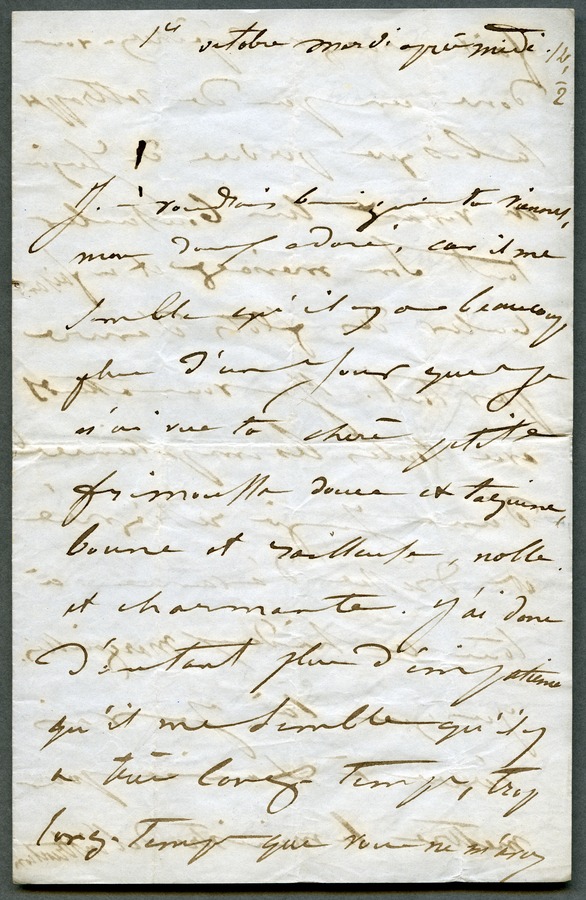 1er octobre mardi après midi. 12h ½
Je voudrais bien que tu viennes,
mon Toto adoré, car il me
semble qu'il y a beaucoup
plus d'un jour que je
n'ai vu ta chère petite
frimousse douce et taquine,
bonne et railleuse, noble
et charmante. J'ai donc
d'autant plus d'impatience
qu'il me semble qu'il y
a très longtemps, trop
longtemps que vous ne m'avez